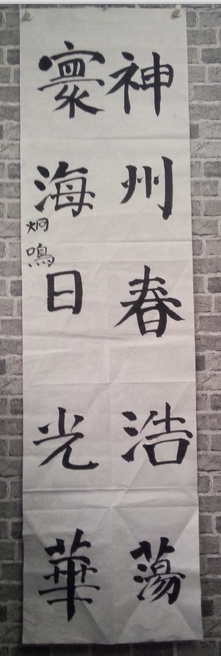 神州春浩蕩
寰海日光華
炯鳴